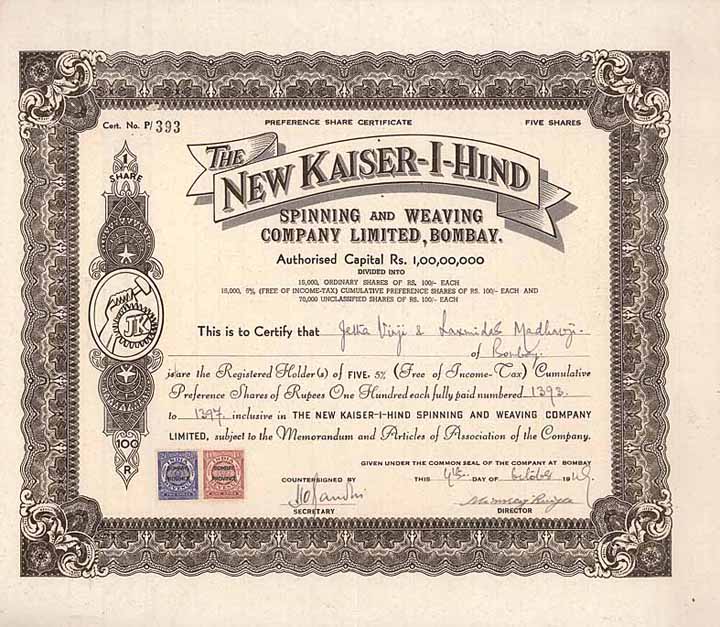 Cert. No. P/393 PREFERENCE SHARE CERTIFICATE FIVE SHARES
THE NEW KAISER-I-HIND
SPINNING AND WEAVING
COMPANY LIMITED, BOMBAY.
Authorised Capital Rs. 1,00,00,000
DIVIDED INTO
15,000, ORDINARY SHARES OF RS. 100/- EACH
15,000, 5% (FREE OF INCOME-TAX) CUMULATIVE PREFERENCE SHARES OF RS. 100/- EACH AND
70,000 UNCLASSIFIED SHARES OF RS. 100/- EACH
1
SHARE
JK
100
R
This is to Certify that Jetha Virji & Laxmidas Madhavji
of Bombay.
is/are the Registered Holder(s) of FIVE, 5% (Free of Income-Tax) Cumulative
Preference Shares of Rupees One Hundred each fully paid numbered 1393
to 1397 inclusive in THE NEW KAISER-I-HIND SPINNING AND WEAVING COMPANY
LIMITED, subject to the Memorandum and Articles of Association of the Company.
GIVEN UNDER THE COMMON SEAL OF THE COMPANY AT BOMBAY
THIS 4th DAY OF October 19
COUNTERSIGNED BY
SECRETARY
DIRECTOR
INDIA
BOMBAY
PROVINCE
REVENUE
INDIA
BOMBAY
PROVINCE
REVENUE